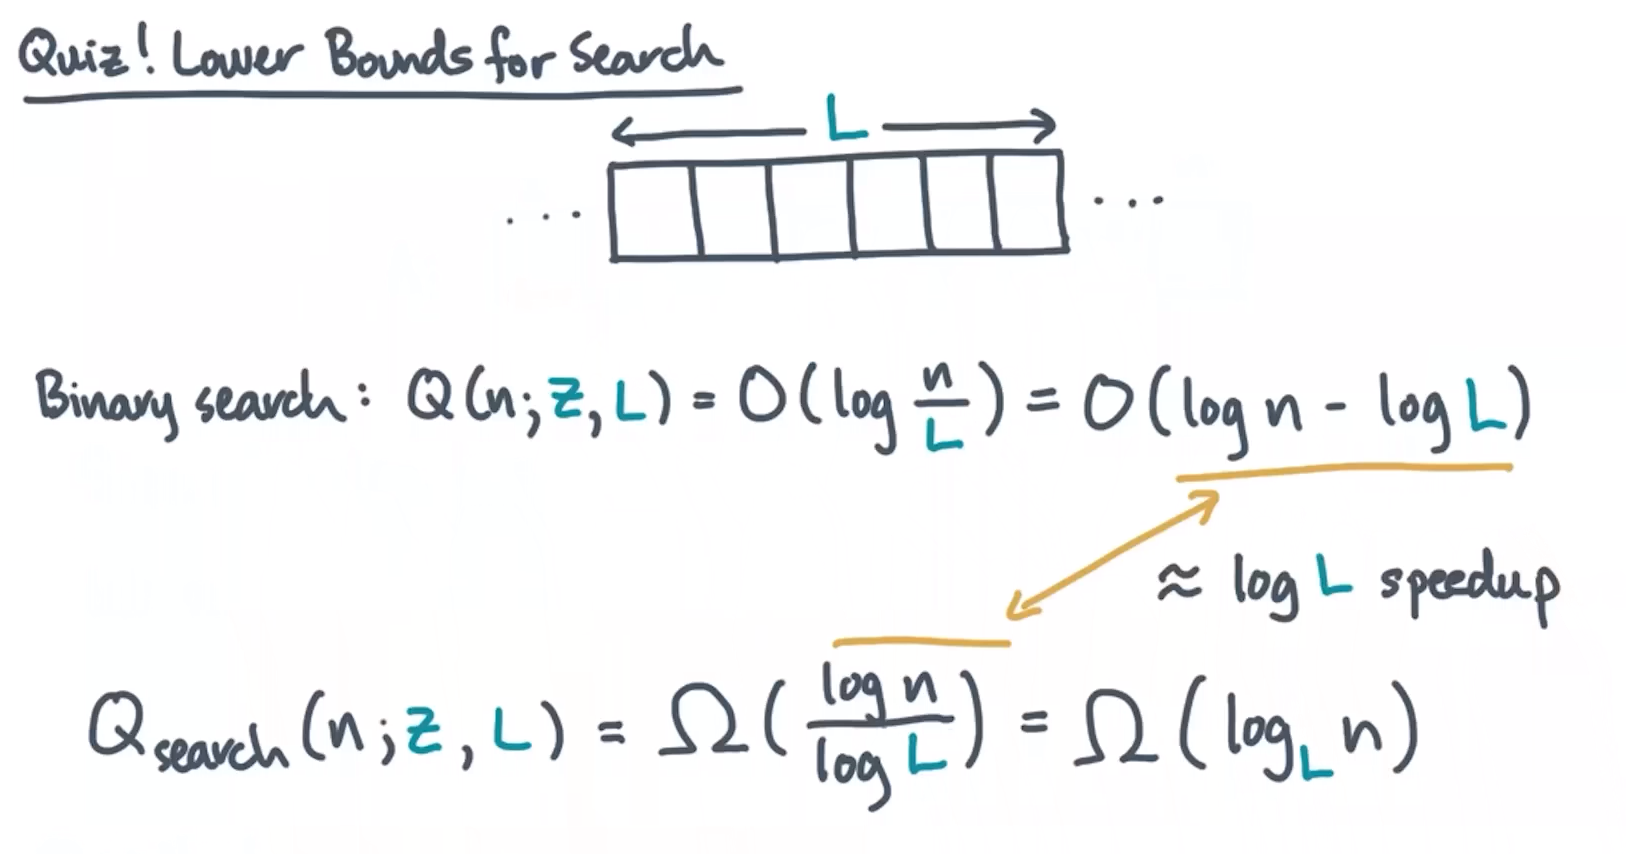 Quiz! Lower Bounds for Search
L
... ...
Binary search: Q(n; Z, L) = O(log n/L) = O(log n - log L)
≈ log L speedup
Q_search(n; Z, L) = Ω(log n / log L) = Ω(log_L n)